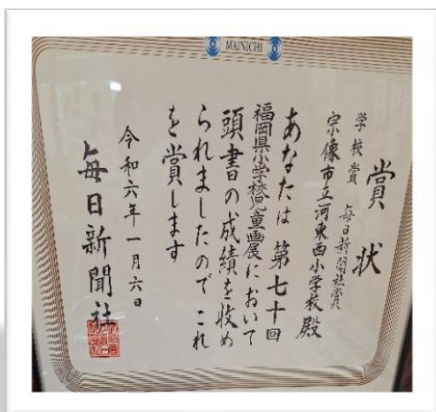 MAINICHI
賞状
学校賞 毎日新聞社賞
宗像市立河東西小学校殿
あなたは第七十回
福岡県小学校児童画展において
頭書の成績を收め
られましたのでこれ
を賞します
令和六年一月六日
毎日新聞社